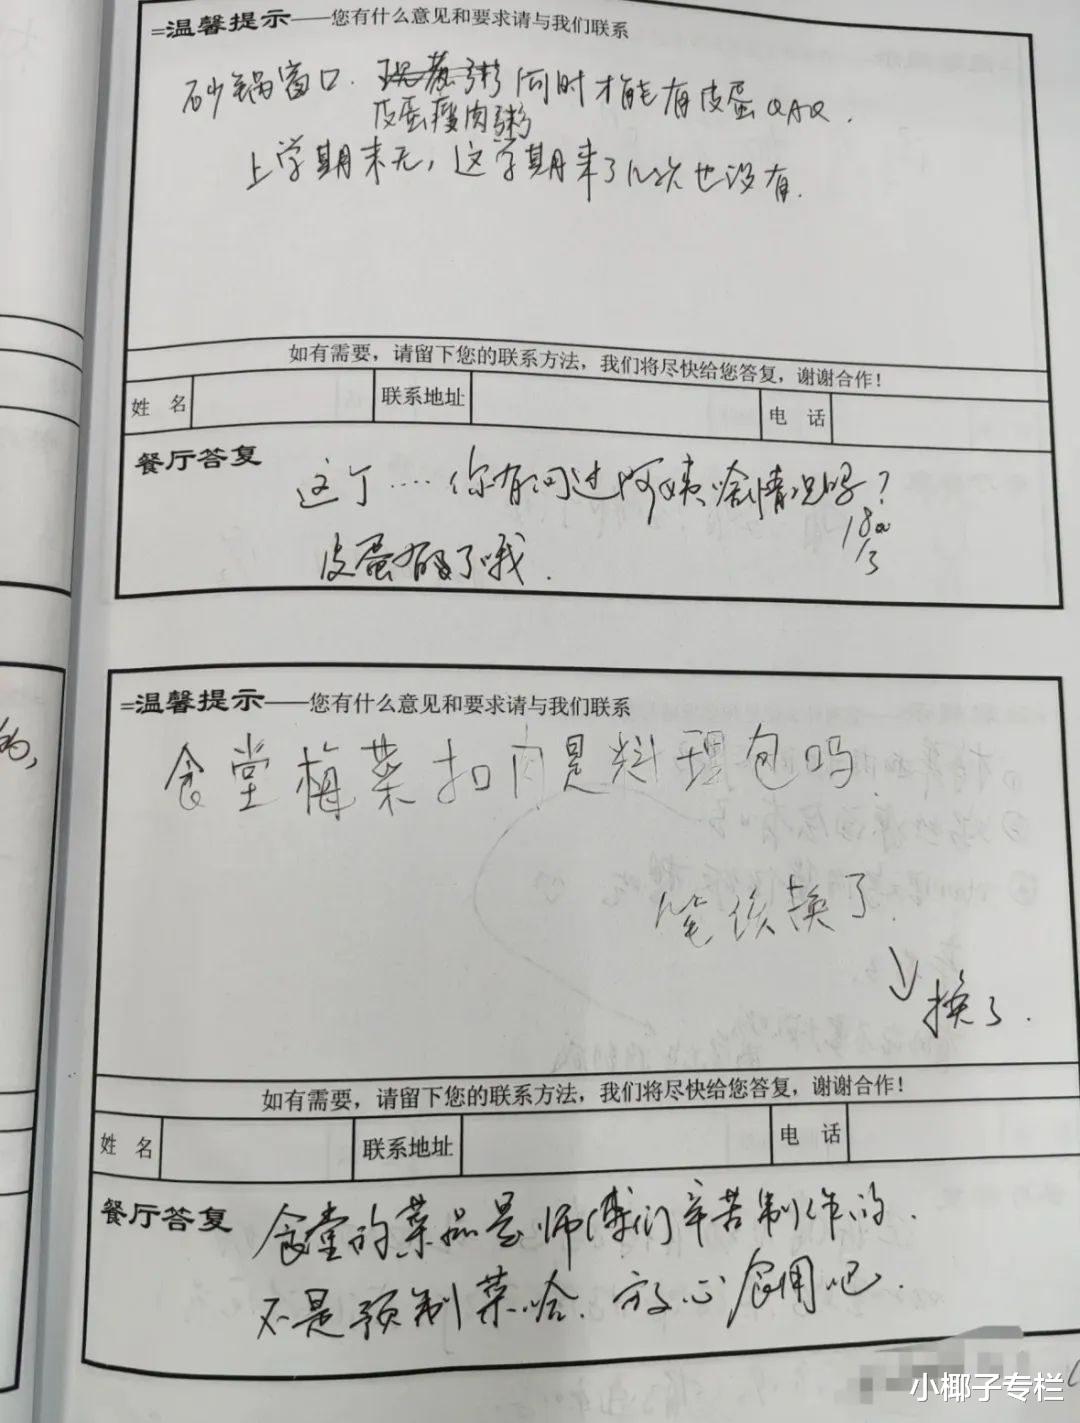 =温馨提示——您有什么意见和要求请与我们联系
砂锅窗口. 同时才能有皮蛋QAQ.
皮蛋瘦肉粥
上学期末无,这学期来了几次也没有.
如有需要,请留下您的联系方法,我们将尽快给您答复,谢谢合作!
姓 名 联系地址 电 话
餐厅答复
这个……你有问过阿姨啥情况吗?
皮蛋有了哦.
=温馨提示——您有什么意见和要求请与我们联系
食堂梅菜扣肉是料理包吗
笔该换了.
换了.
如有需要,请留下您的联系方法,我们将尽快给您答复,谢谢合作!
姓 名 联系地址 电 话
餐厅答复
食堂的菜品是师傅们辛苦制作的.
不是预制菜哈.放心食用吧.
小椰子专栏